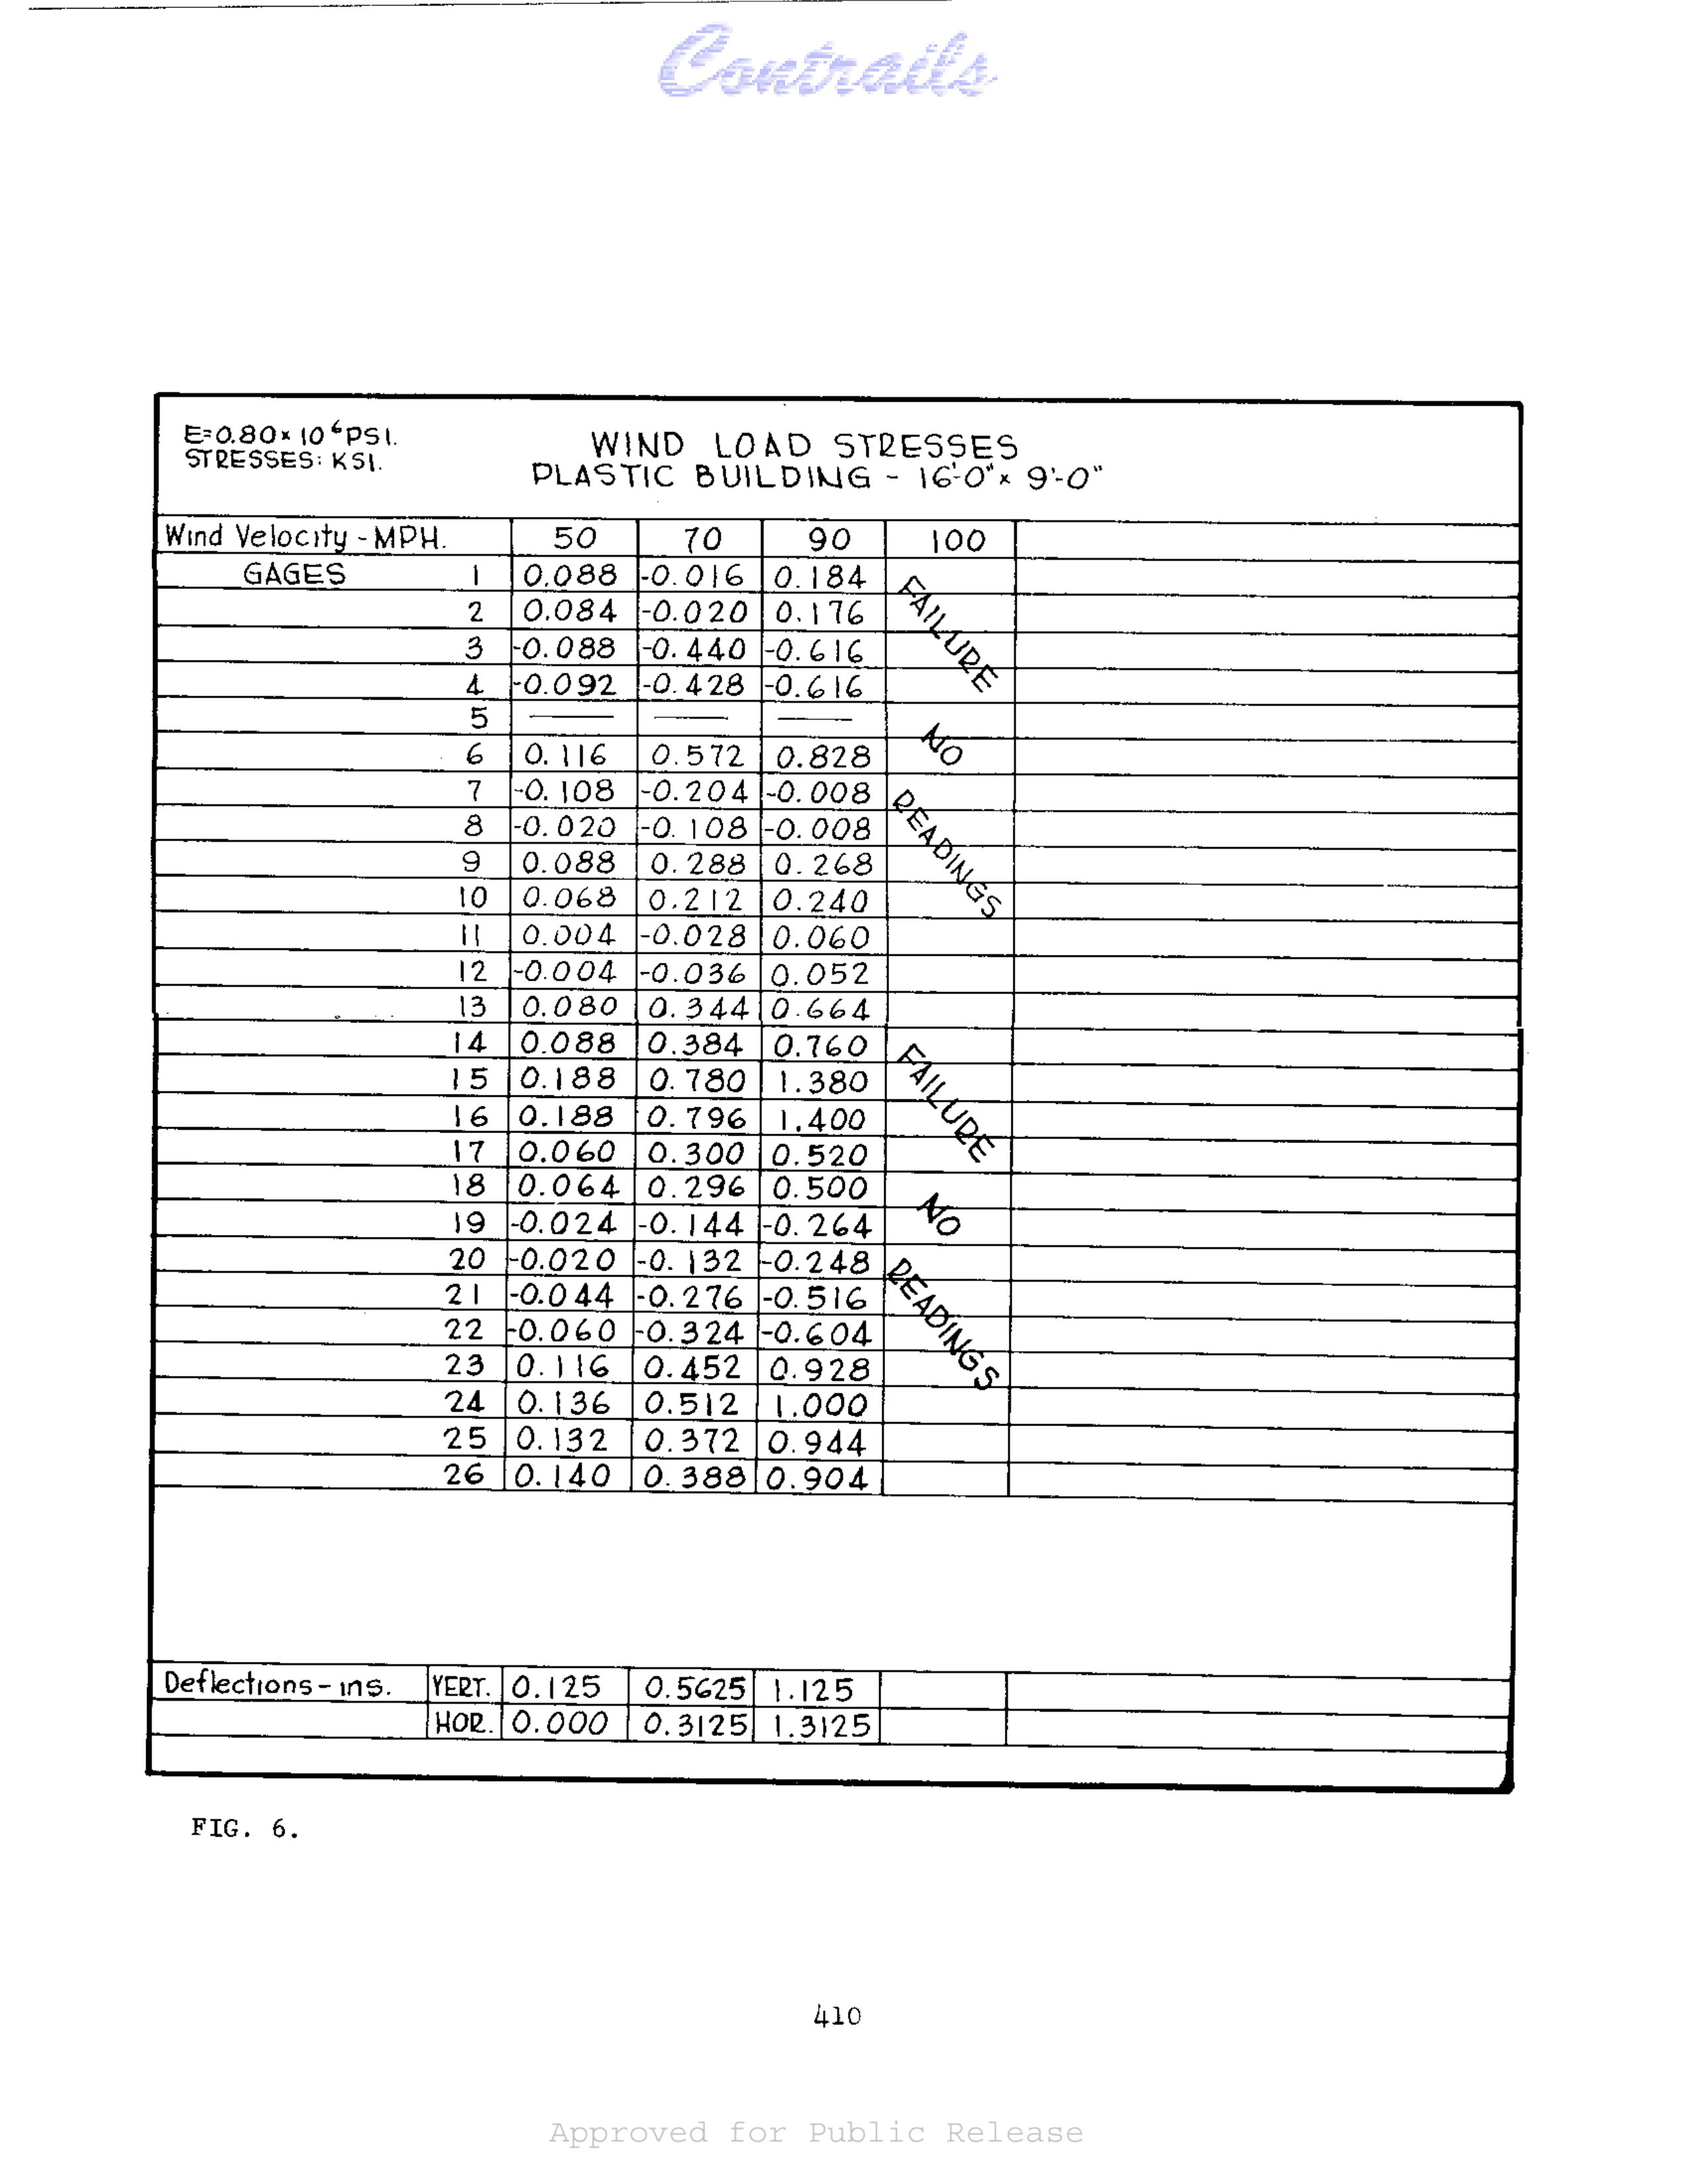 Contrails
E=0.80×10⁶PSI.
STRESSES: KSI.
WIND LOAD STRESSES
PLASTIC BUILDING - 16'-0"× 9'-0"
Wind Velocity - MPH. 50 70 90 100
GAGES 1 0.088 -0.016 0.184
2 0.084 -0.020 0.176
3 -0.088 -0.440 -0.616
4 -0.092 -0.428 -0.616
5 — — —
6 0.116 0.572 0.828
7 -0.108 -0.204 -0.008
8 -0.020 -0.108 -0.008
9 0.088 0.288 0.268
10 0.068 0.212 0.240
11 0.004 -0.028 0.060
12 -0.004 -0.036 0.052
13 0.080 0.344 0.664
14 0.088 0.384 0.760
15 0.188 0.780 1.380
16 0.188 0.796 1.400
17 0.060 0.300 0.520
18 0.064 0.296 0.500
19 -0.024 -0.144 -0.264
20 -0.020 -0.132 -0.248
21 -0.044 -0.276 -0.516
22 -0.060 -0.324 -0.604
23 0.116 0.452 0.928
24 0.136 0.512 1.000
25 0.132 0.372 0.944
26 0.140 0.388 0.904
FAILURE
NO
READINGS
FAILURE
NO
READINGS
Deflections - ins. VERT. 0.125 0.5625 1.125
HOR. 0.000 0.3125 1.3125
FIG. 6.
410
Approved for Public Release